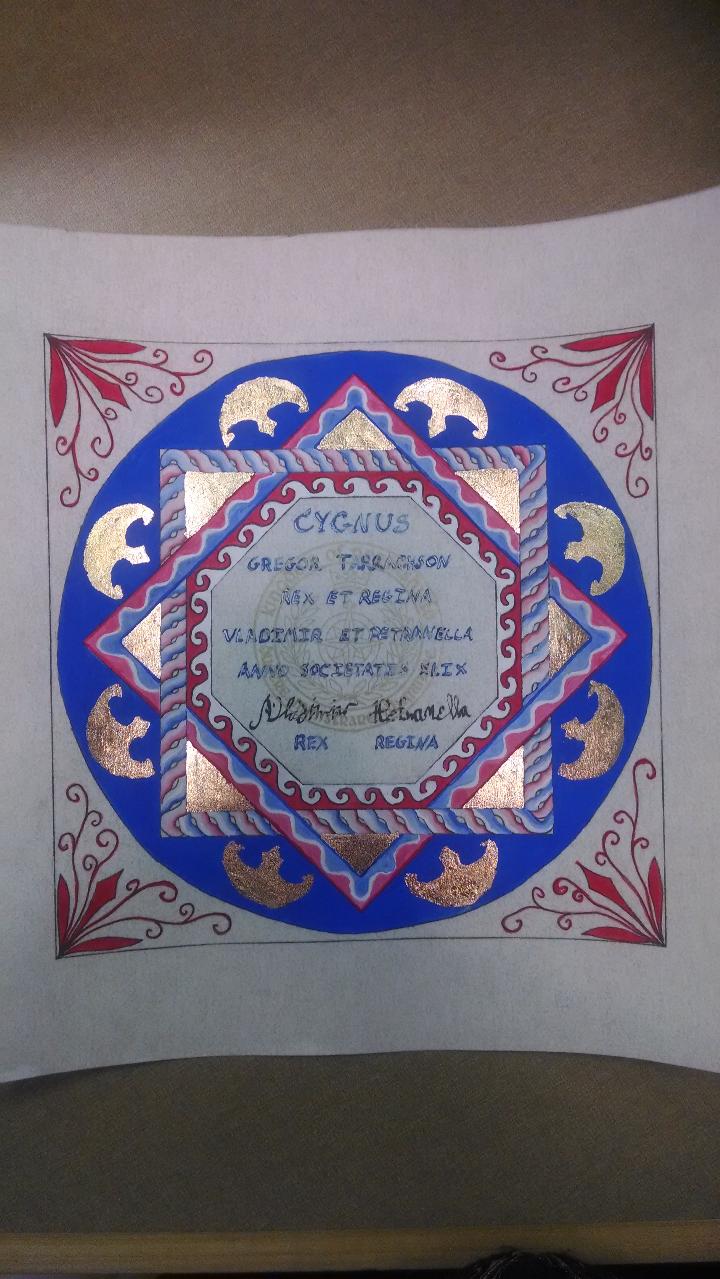 CYGNUS
GREGOR TARRACHSON
REX ET REGINA
VLADIMIR ET PETRANELLA
ANNO SOCIETATIS XLIX
Vladimir Petranella
REX REGINA